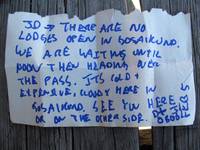 JD → THERE ARE NO
LODGES OPEN IN GOSAIKUND.
WE ARE WAITING UNTIL
NOON THEN HEADING OVER
THE PASS. ITS COLD &
EXPENSIVE, CLOUDY HERE IN
GOSAIKUND. SEE YOU HERE
OR ON THE OTHER SIDE.